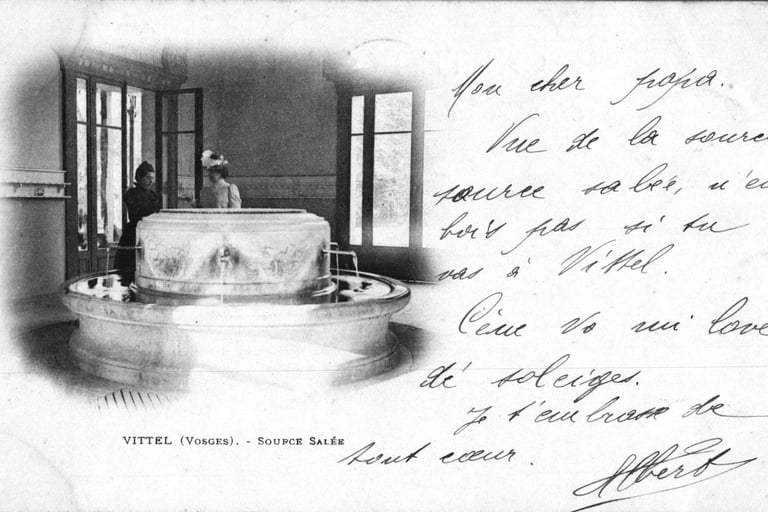 Mon cher papa.
Vue de la source
source salée, n'en
bois pas si tu
vas à Vittel.
Je t'embrasse de
tout cœur.
Albert
VITTEL (VOSGES). - SOURCE SALÉE